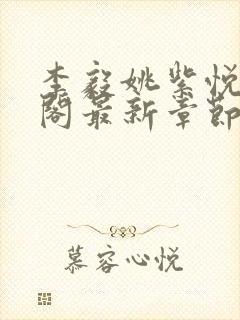 李毅姚紫悦
阁最新章節
慕容心悦